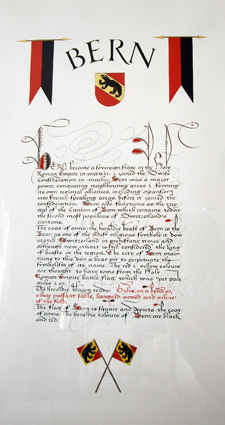 BERN
Bern became a sovereign state in the Holy
Roman Empire in joined the Swiss
Confederation in Bern was a major
power, conquering neighbouring areas & forming
its own regional alliances, including expansion
into French speaking areas, before it joined the
confederation. Bern also functions as the cap
ital of the Canton of Bern which remains today
the second most populous of Switzerland's
cantons.
The coat of arms: the heraldic beast of Bern is the
Bear; one of the oldest religious symbols it dom
inated Switzerland in prehistoric times and
although now almost extinct continued the king
of beasts in the region. The city of Bern
to this day a bear pit to perpetuate the
symbolism of its name. The red & yellow colours
are thought to have come from the Holy
Roman Empire battle flag which was per pale
The heraldic blazon reads: Gules, on a bend or,
a bear passant sable, langued, armed and
of the
The flag of Bern is square and depicts the coat
of arms. The heraldic colours of Bern are black
and red.